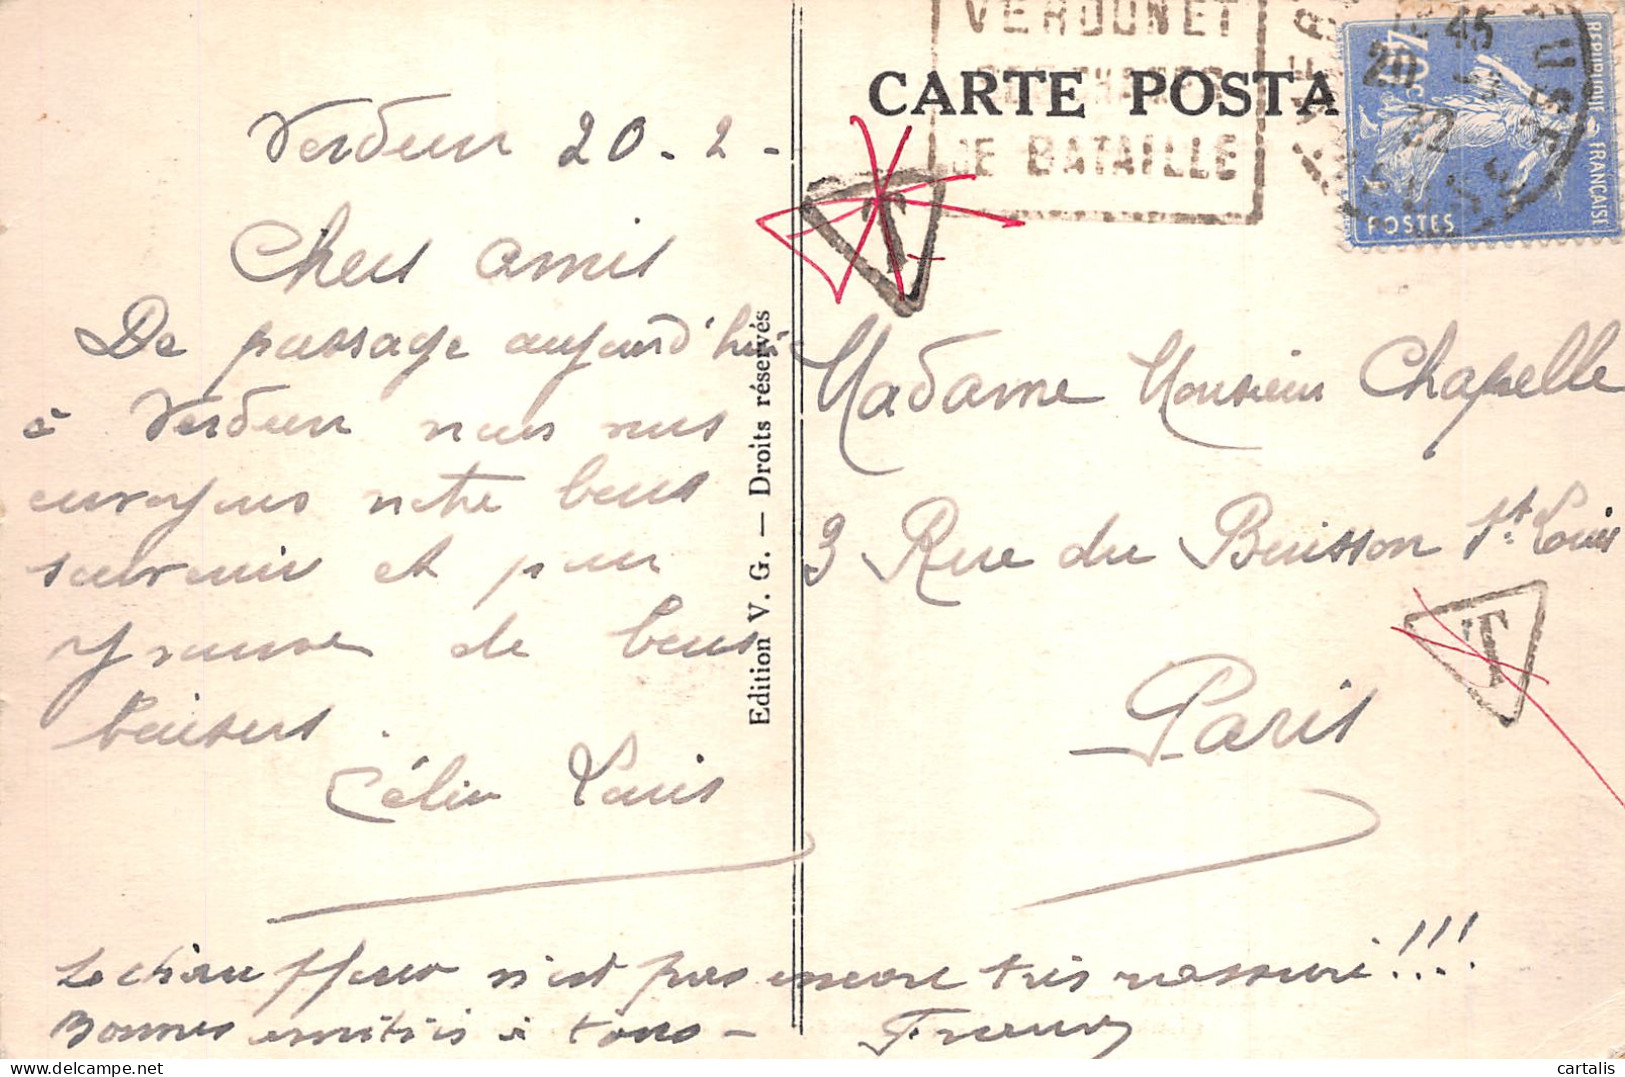 Verdun 20-2-
Chers amis
De passage aujourd'hui
à Verdun nous vous
envoyons notre bons
souvenir et pour
de bons
baisers
Célin
Le chauffeur n'est pas encore très rassuré!!!
Bonnes amitiés à tous —
Edition V. G. — Droits réservés
CARTE POSTA
VERDUN ET
DE BATAILLE
T
45
20
40c
REPUBLIQUE FRANÇAISE
POSTES
Madame Monsieur Chapelle
3 Rue du Buisson St. Louis
Paris
T
cartalis